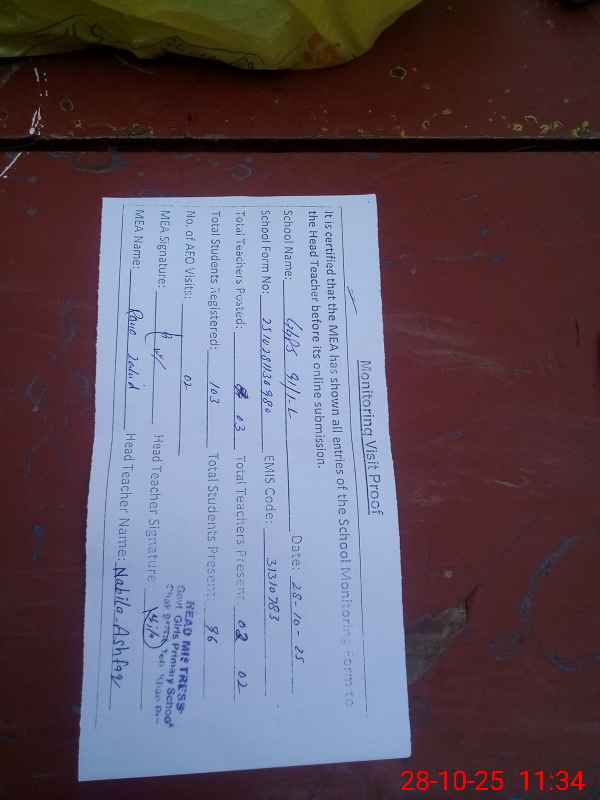 Monitoring Visit Proof
It is certified that the MEA has shown all entries of the School Monitoring Form to
the Head Teacher before its online submission.
School Name: GGPS 91/1-L Date: 28-10-25
School Form No: EMIS Code: 31310783
Total Teachers Posted: 03 Total Teachers Present: 02 02
Total Students Registered: 103 Total Students Present: 96
No. of AEO Visits: 02
HEAD MISTRESS
Govt Girls Primary School
MEA Signature: Head Teacher Signature:
MEA Name: Rana Zahid Head Teacher Name: Nabila Ashfaq
28-10-25 11:34